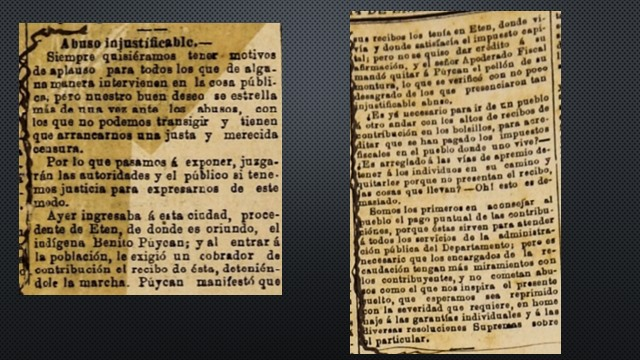 Abuso injustificable.—
Siempre quisiéramos tener motivos
de aplauso para todos los que de algu-
na manera intervienen en la cosa públi-
ca, pero nuestro buen deseo se estrella
más de una vez ante los abusos, con
los que no podemos transigir y tienen
que arrancarnos una justa y merecida
censura.
Por lo que pasamos á exponer, juzga-
rán las autoridades y el público si tene-
mos justicia para expresarnos de este
modo.
Ayer ingresaba á esta ciudad, proce-
dente de Eten, de donde es oriundo, el
indígena Benito Púycan; y al entrar á
la población, le exigió un cobrador de
contribución el recibo de ésta, detenién-
dole la marcha. Púycan manifestó que
sus recibos los tenía en Eten, donde vi-
vía y donde satisfacía el impuesto capi-
tal; pero no se quiso dar crédito á su
afirmación, y el señor Apoderado Fiscal
mandó quitar á Púycan el pellón de su
montura, lo que se verificó con no poco
desagrado de los que presenciaron tan
injustificable abuso.
¿Es yá necesario para ir de un pueblo
á otro andar con los altos de recibos de
contribución en los bolsillos, para acre-
ditar que se han pagado los impuestos
fiscales en el pueblo donde uno vive?—
¿Es arreglado á las vías de apremio de-
tener á los individuos en su camino y
quitarles porque no presentan el recibo,
las cosas que llevan?—Oh! esto es de-
masiado.
Somos los primeros en aconsejar al
pueblo el pago puntual de las contribu-
ciones, porque éstas sirven para atender
á todos los servicios de la administra-
ción pública del Departamento; pero es
necesario que los encargados de la re-
caudación tengan más miramientos con
los contribuyentes, y no cometan abu-
sos como el que nos inspira el presente
suelto, que esperamos sea reprimido
con la severidad que requiere, en home
naje á las garantías individuales y á las
diversas resoluciones Supremas sobre
el particular.